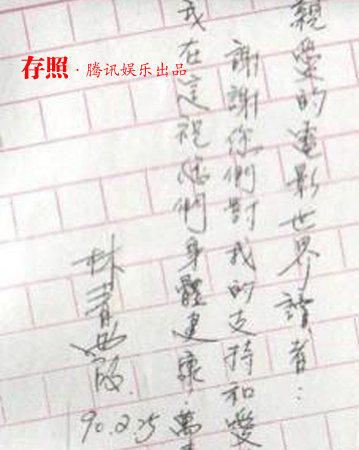 存照·腾讯娱乐出品
親愛的電影世界讀者：
謝謝您們對我的支持和愛
我在這祝您們身體健康.萬
林青霞
90.2.25